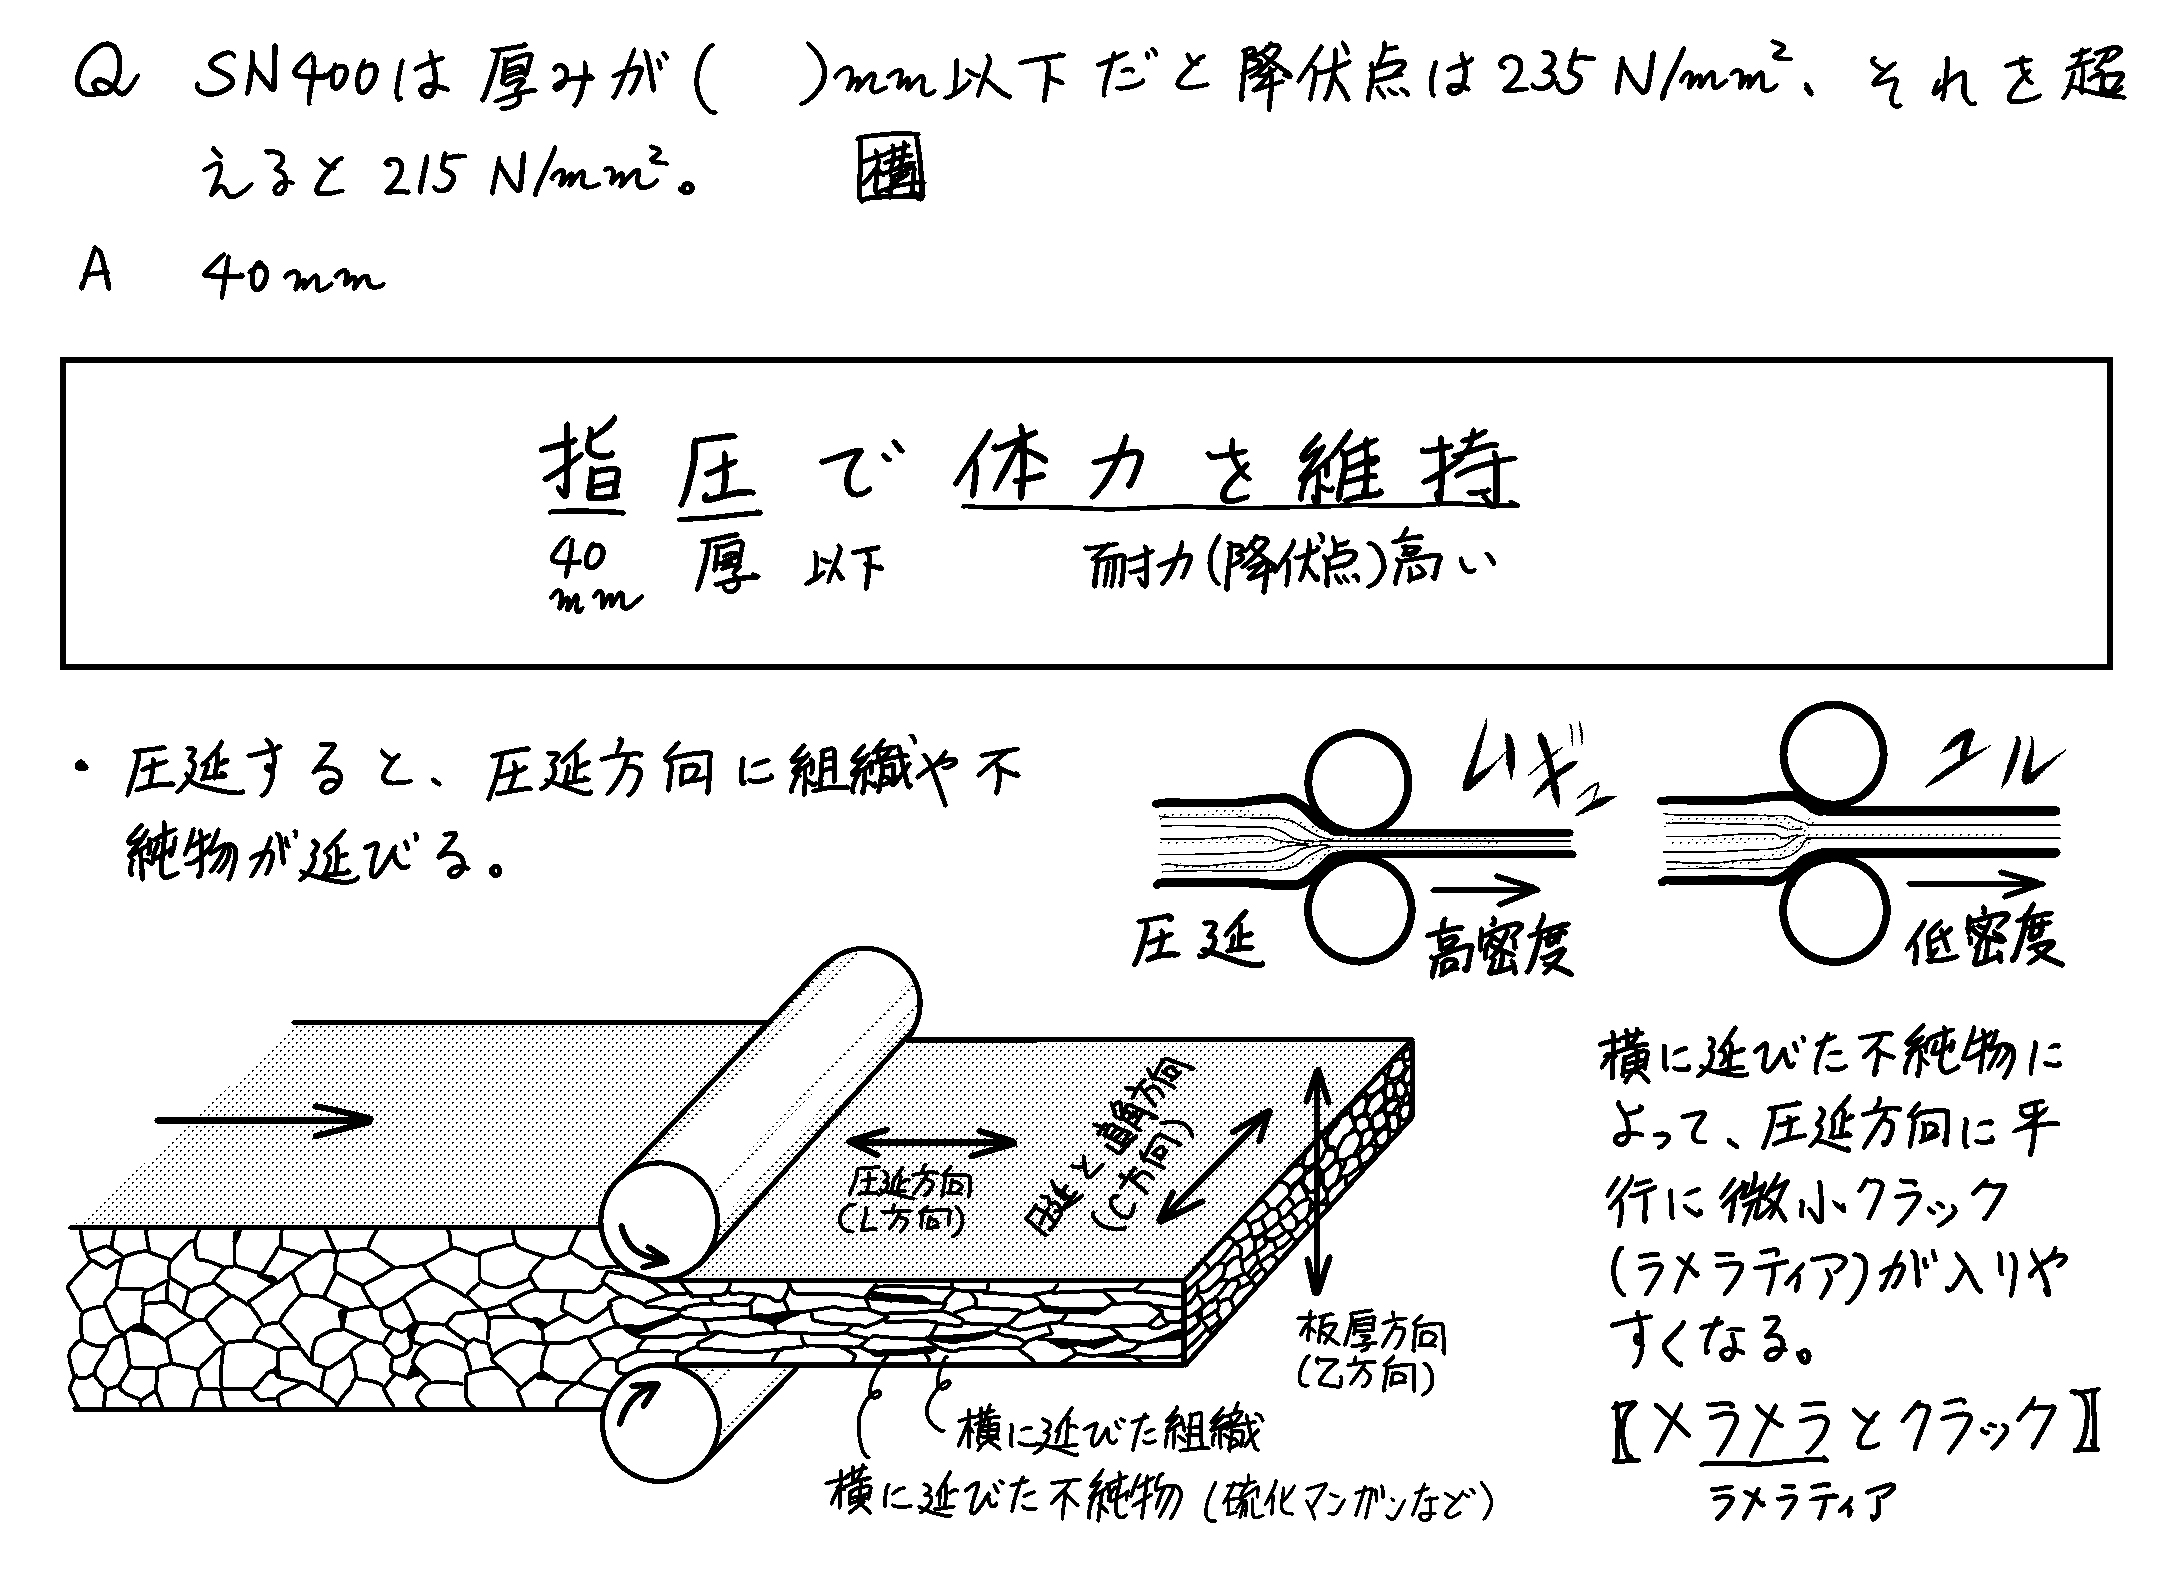 Q SN400は厚みが(　　)mm以下だと降伏点は235 N/mm²、それを超
えると 215 N/mm²。 構
A 40mm
指圧で体力を維持
40mm 厚 以下 耐力(降伏点)高い
・圧延すると、圧延方向に組織や不
純物が延びる。
ムギュ
圧延
高密度
ユル
低密度
圧延方向
(L方向)
圧延と直角方向
(C方向)
板厚方向
(Z方向)
横に延びた組織
横に延びた不純物 (硫化マンガンなど)
横に延びた不純物に
よって、圧延方向に平
行に微小クラック
(ラメラティア)が入りや
すくなる。
〖メラメラとクラック〗
ラメラティア